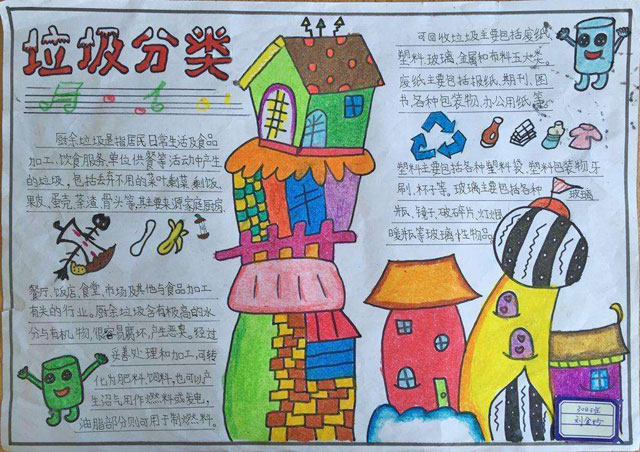 垃圾分类
厨余垃圾是指居民日常生活及食品
加工、饮食服务、单位供餐等活动中产生
的垃圾，包括丢弃不用的菜叶、剩菜、剩饭、
果皮、蛋壳、茶渣、骨头等，其主要来源家庭厨房、
餐厅、饭店、食堂、市场及其他与食品加工
有关的行业。厨余垃圾含有极高的水
分与有机物，很容易腐坏，产生恶臭。经过
妥善处理和加工，可转
化为肥料、饲料，也可以产
生沼气用作燃料或发电，
油脂部分则可用于制燃料。
可回收垃圾主要包括废纸、
塑料、玻璃、金属和布料五大类。
废纸主要包括报纸、期刊、图
书、各种包装物、办公用纸等。
塑料主要包括各种塑料袋、塑料包装物、牙
刷、杯子等，玻璃主要包括各种
玻璃
瓶、镜子、破碎片、灯组
暖瓶等玻璃性物品
304班